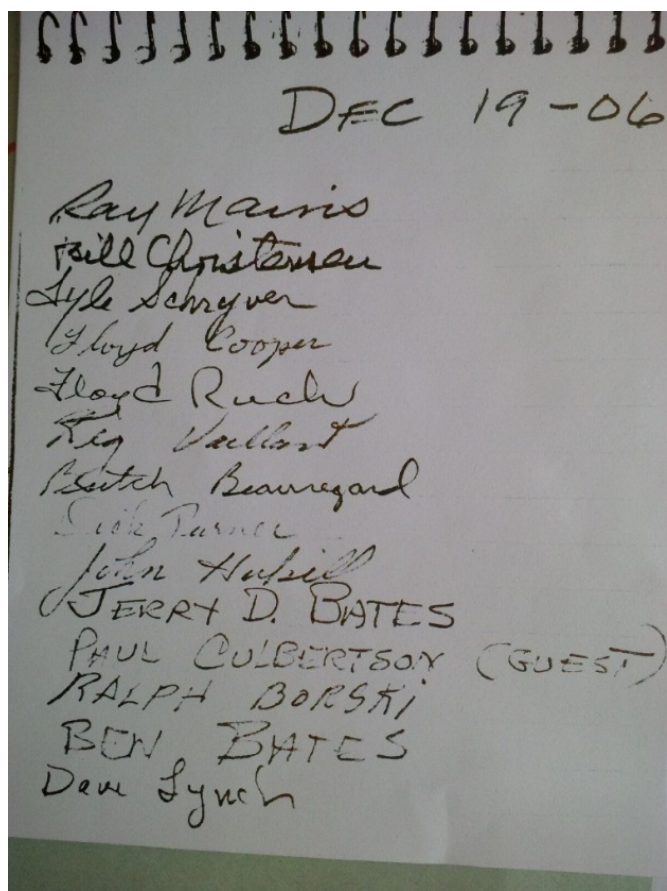 DEC 19-06
Ray Mains
Bill Christensen
Lyle Schryver
Floyd Cooper
Floyd Ruch
Reg Vaillant
Butch Beauregard
Dick Turner
John
JERRY D. BATES
PAUL CULBERTSON (GUEST)
RALPH BORSKI
BEN BATES
Dave Lynch